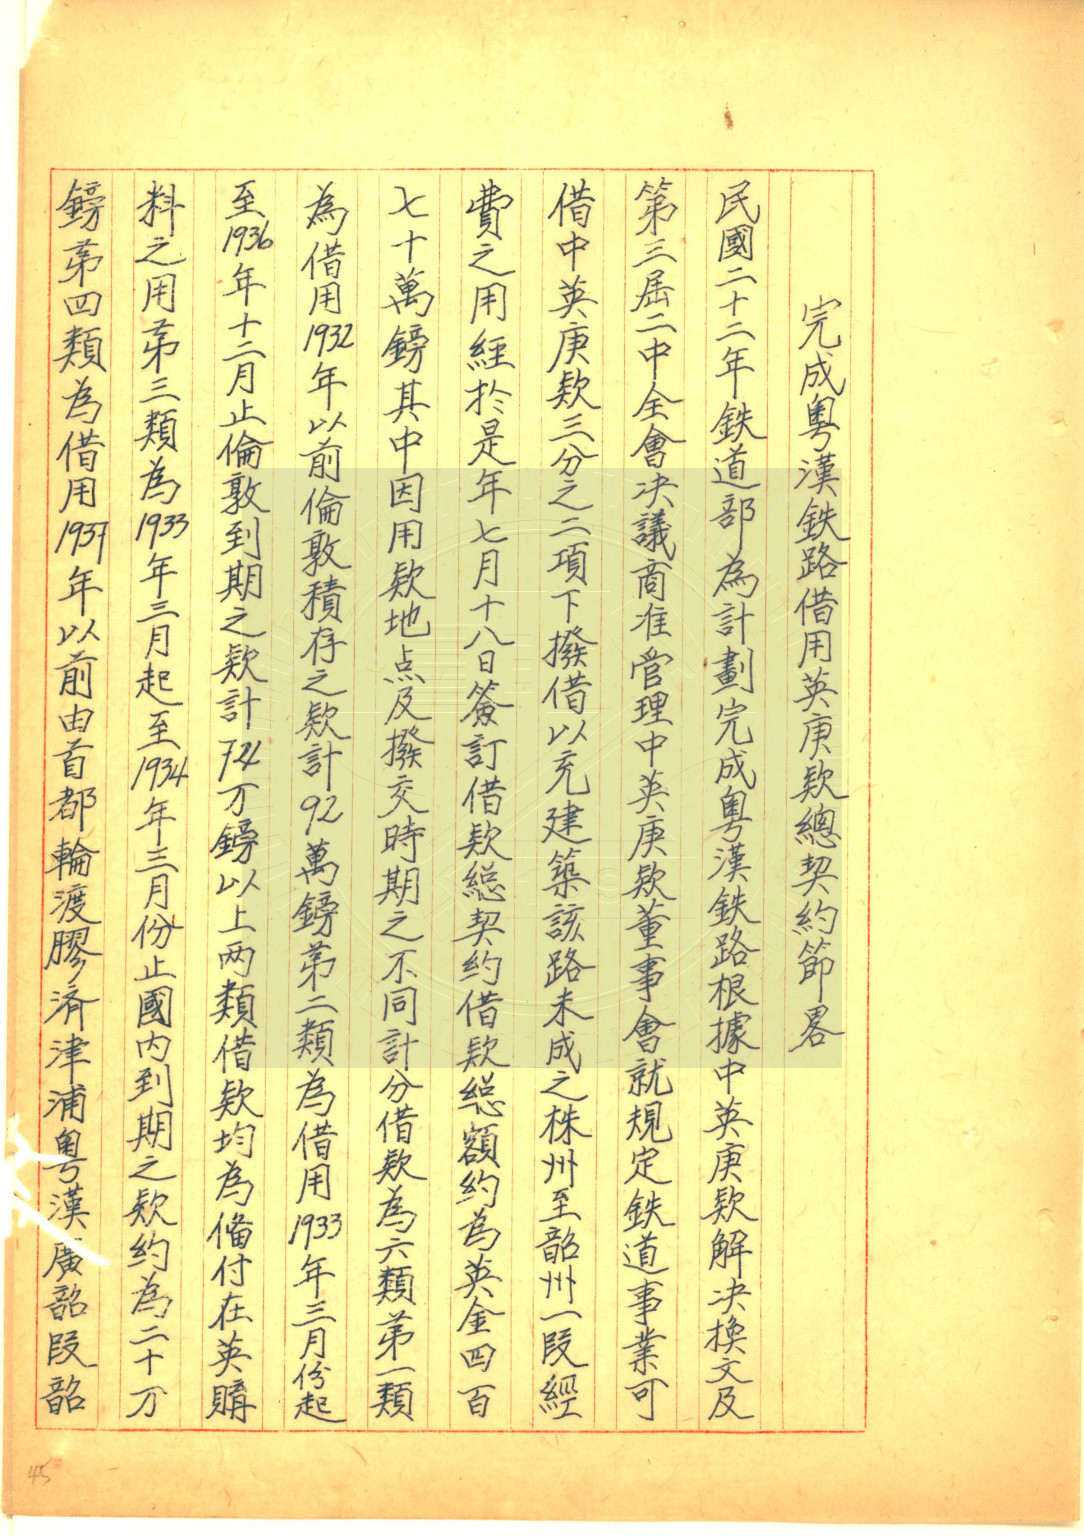 完成粵漢鉄路借用英庚欵總契約節畧
民國二十二年鉄道部為計劃完成粵漢鉄路根據中英庚欵解決換文及
第三屆二中全會决議商准管理中英庚欵董事會就規定鉄道事業可
借中英庚欵三分之二項下撥借以充建築該路未成之株州至韶州一段經
費之用經於是年七月十八日簽訂借欵総契約借欵総額約為英金四百
七十萬鎊其中因用欵地点及撥交時期之不同計分借欵為六類第一類
為借用1932年以前倫敦積存之欵計92萬鎊第二類為借用1933年三月份起
至1936年十二月止倫敦到期之欵計724万鎊以上兩類借欵均為俻付在英購
料之用第三類為1933年三月起至1934年三月份止國内到期之欵約為二十万
鎊第四類為借用1937年以前由首都輪渡膠济津浦粵漢廣韶段韶
45